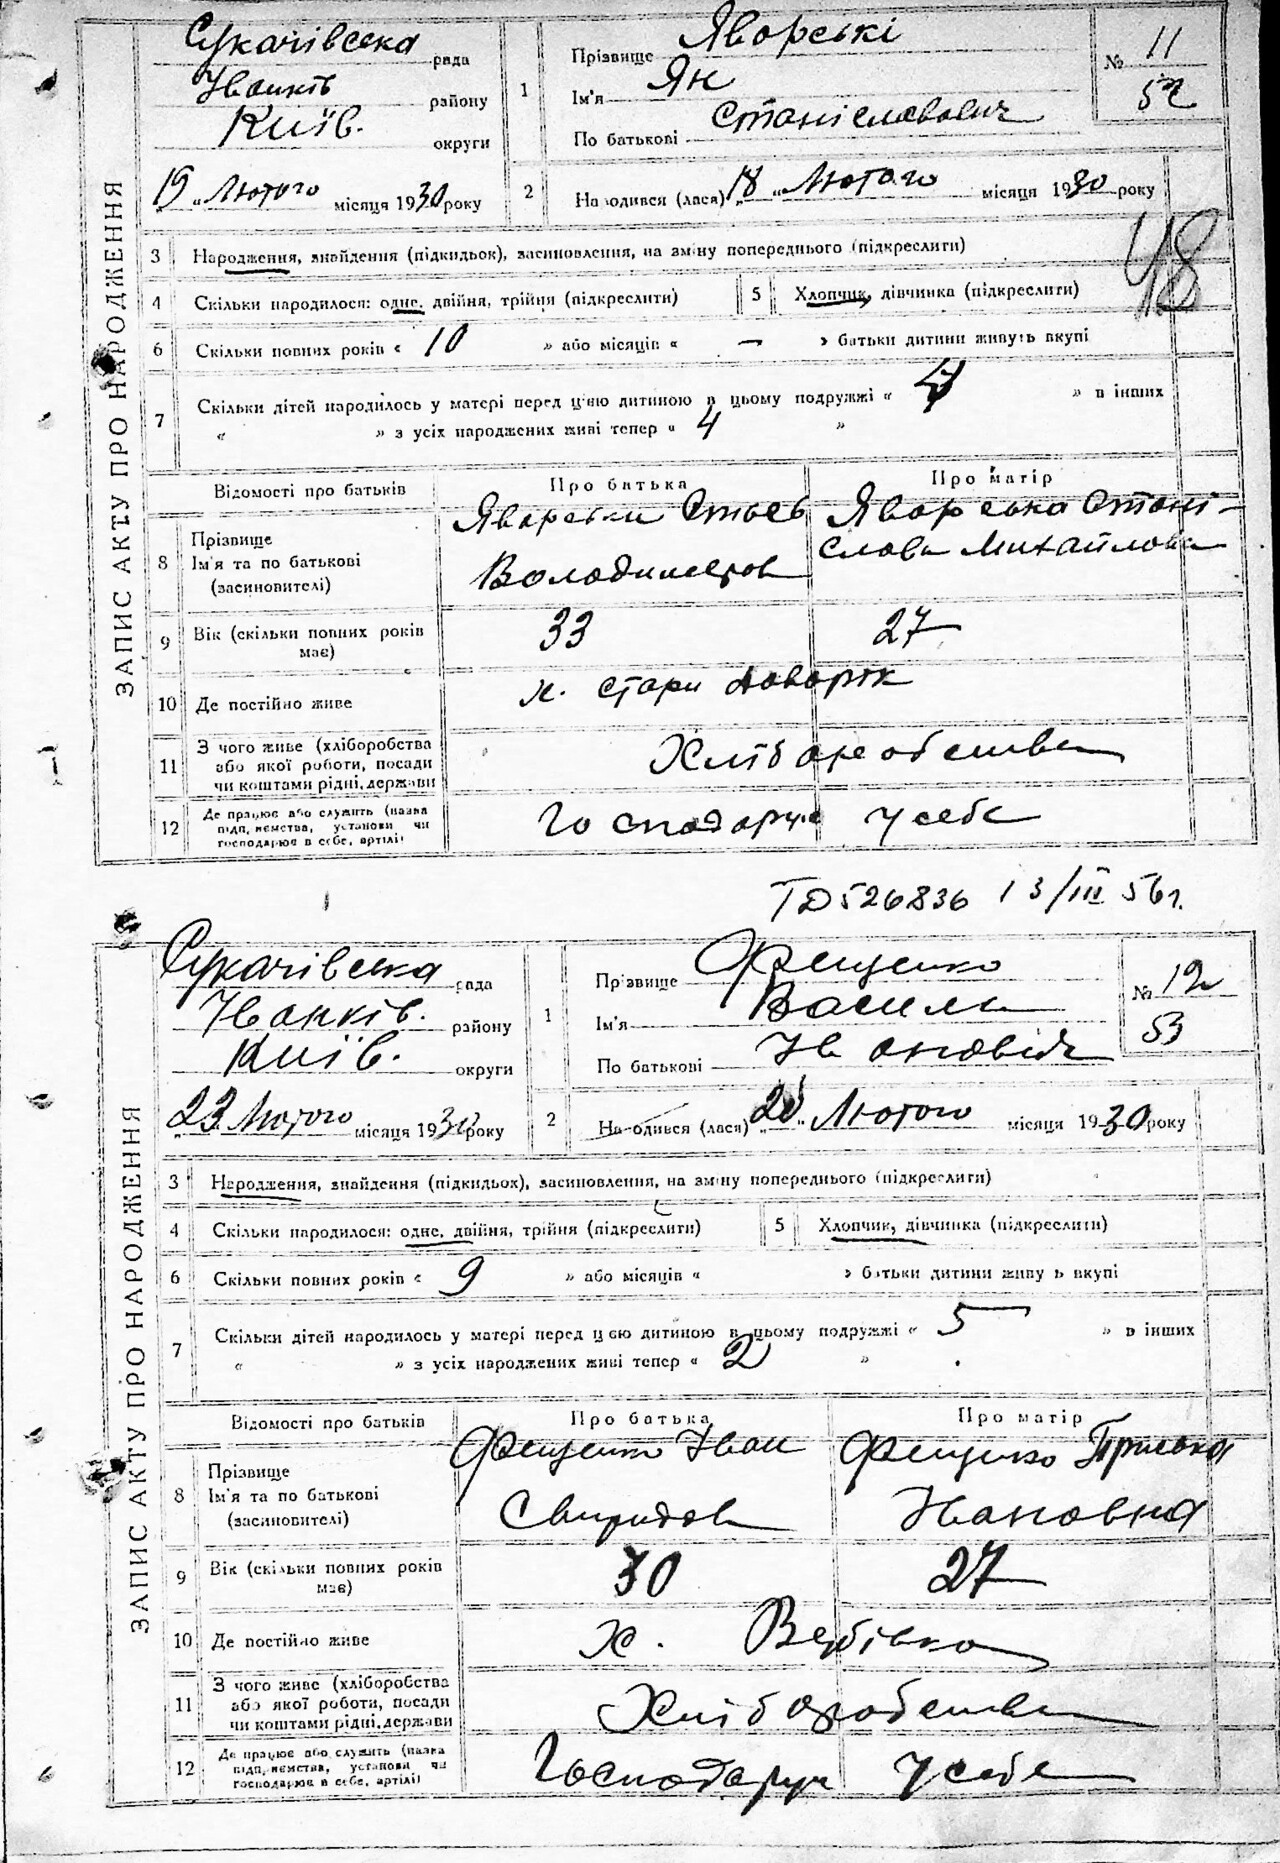 ЗАПИС АКТУ ПРО НАРОДЖЕННЯ
Сукачівська рада
Іванків району
Київ. округи
19 „Лютого місяця 1930 року
1 Прізвище Яворські
Ім'я Ян
По батькові Станіславович
№ 11
52
2 Народився (лася) „18" Лютого місяця 1930 року
48
3 Народження, знайдення (підкидьок), засиновлення, на зміну попереднього (підкреслити)
4 Скільки народилося: одне, двійня, трійня (підкреслити)
5 Хлопчик, дівчинка (підкреслити)
6 Скільки повних років « 10 » або місяців « — » батьки дитини живуть вкупі
7 Скільки дітей народилось у матері перед цією дитиною в цьому подружжі « » в інших
« » з усіх народжених живі тепер « 4 »
Відомості про батьків Про батька Про матір
8 Прізвище
Ім'я та по батькові
(засиновителі)
Яворськи
Володимиров
Яворська Стані-
слава Михайлова
9 Вік (скільки повних років має) 33 27
10 Де постійно живе х. Стари
11 З чого живе (хліборобства
або якої роботи, посади
чи коштами рідні, держави
Хліборобства
12 Де працює або служить (назва
підприємства, установи чи
господарює в себе, артілі)
Господарує у себе
ТД 526836 13/III 56 г.
ЗАПИС АКТУ ПРО НАРОДЖЕННЯ
Сукачівська рада
Іванків. району
Київ. округи
„23 Лютого місяця 1930 року
1 Прізвище Фещенко
Ім'я Василь
По батькові Іванович
№ 12
53
2 Народився (лася) „20" Лютого місяця 1930 року
3 Народження, знайдення (підкидьок), засиновлення, на зміну попереднього (підкреслити)
4 Скільки народилося: одне, двійня, трійня (підкреслити)
5 Хлопчик, дівчинка (підкреслити)
6 Скільки повних років « 9 » або місяців « » батьки дитини живу ь вкупі
7 Скільки дітей народилось у матері перед цією дитиною в цьому подружжі « 5 » в інших
« » з усіх народжених живі тепер « 2 »
Відомості про батьків Про батька Про матір
8 Прізвище
Ім'я та по батькові
(засиновителі)
Фещенко Іван
Свиридов
Фещенко Приська
Івановна
9 Вік (скільки повних років має) 30 27
10 Де постійно живе х. Вербівка
11 З чого живе (хліборобства
або якої роботи, посади
чи коштами рідні, держави
Хліборобства
12 Де працює або служить (назва
підприємства, установи чи
господарює в себе, артілі)
Господарує у себе